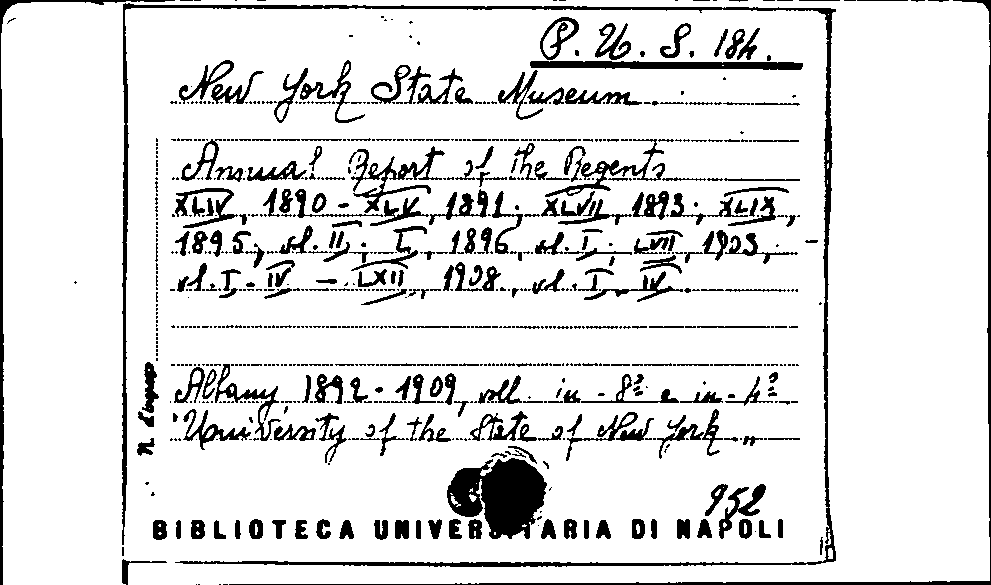 P. U. S. 184.
New York State Museum.
Annual Report of the Regents
XLIV, 1890 - XLV, 1891; XLVII, 1893; XLIX,
1895, vl. II; L, 1896, vl. I; LVII, 1903,
vl. I - IV - LXII, 1908, vl. I - IV.
Albany, 1892 - 1909, voll. in - 8º e in - 4º
"University of the State of New York."
N. d'ingresso
952
BIBLIOTECA UNIVERSITARIA DI NAPOLI